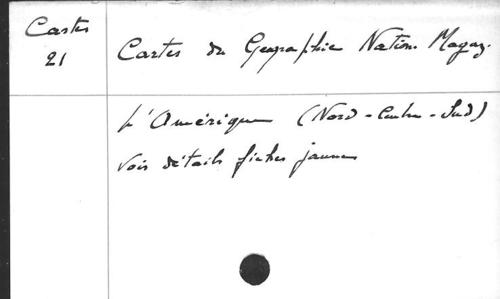 Cartes
21
Cartes du Geographic Nation. Magaz.
L'Amérique (Nord - Centre - Sud)
Voir détails fiches jaunes